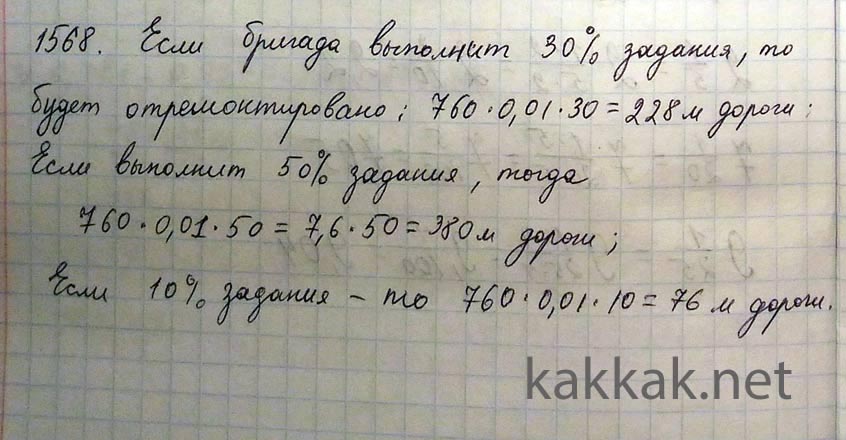 1568. Если бригада выполнит 30% задания, то
будет отремонтировано: 760·0,01·30=228м дороги;
Если выполнит 50% задания, тогда
760·0,01·50=7,6·50=380м дороги;
Если 10% задания – то 760·0,01·10=76 м дороги.
kakkak.net